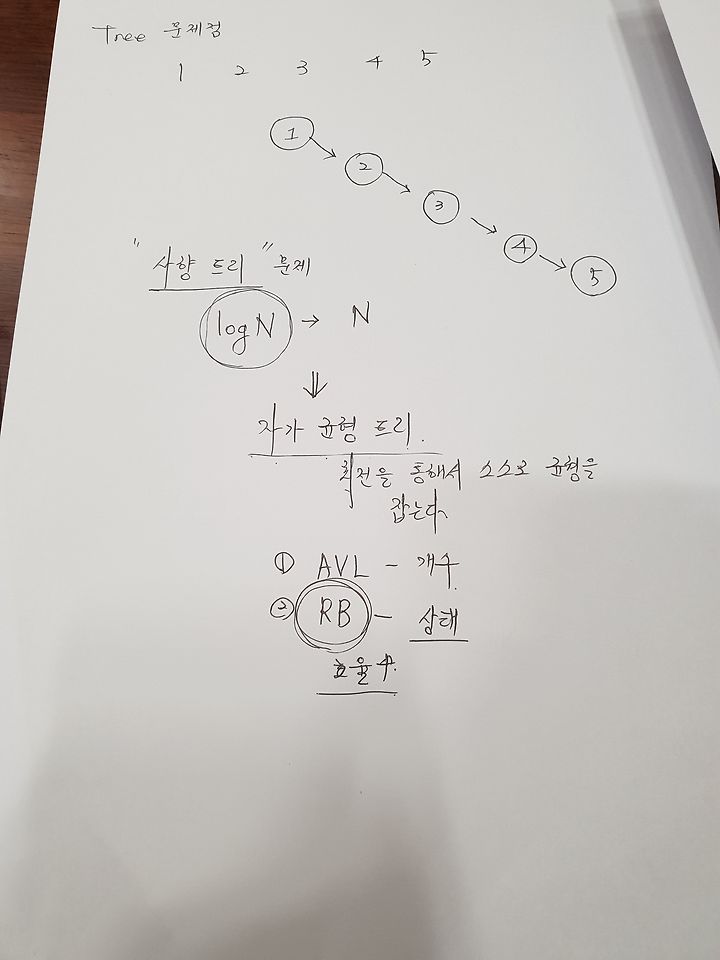 Tree 문제점
1 2 3 4 5
1 → 2 → 3 → 4 → 5
"사향 트리" 문제
logN → N
⇓
자가 균형 트리.
회전을 통해서 스스로 균형을
잡는다
① AVL - 개수
② RB - 상태
효율